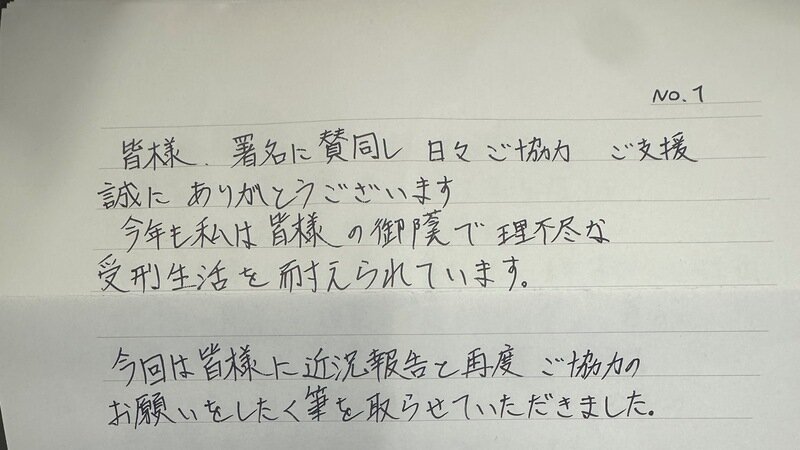 No.1
皆様、署名に賛同し 日々ご協力 ご支援
誠に ありがとうございます
今年も私は皆様の御蔭で理不尽な
受刑生活を耐えられています。
今回は皆様に近況報告と再度 ご協力の
お願いをしたく筆を取らせていただきました。